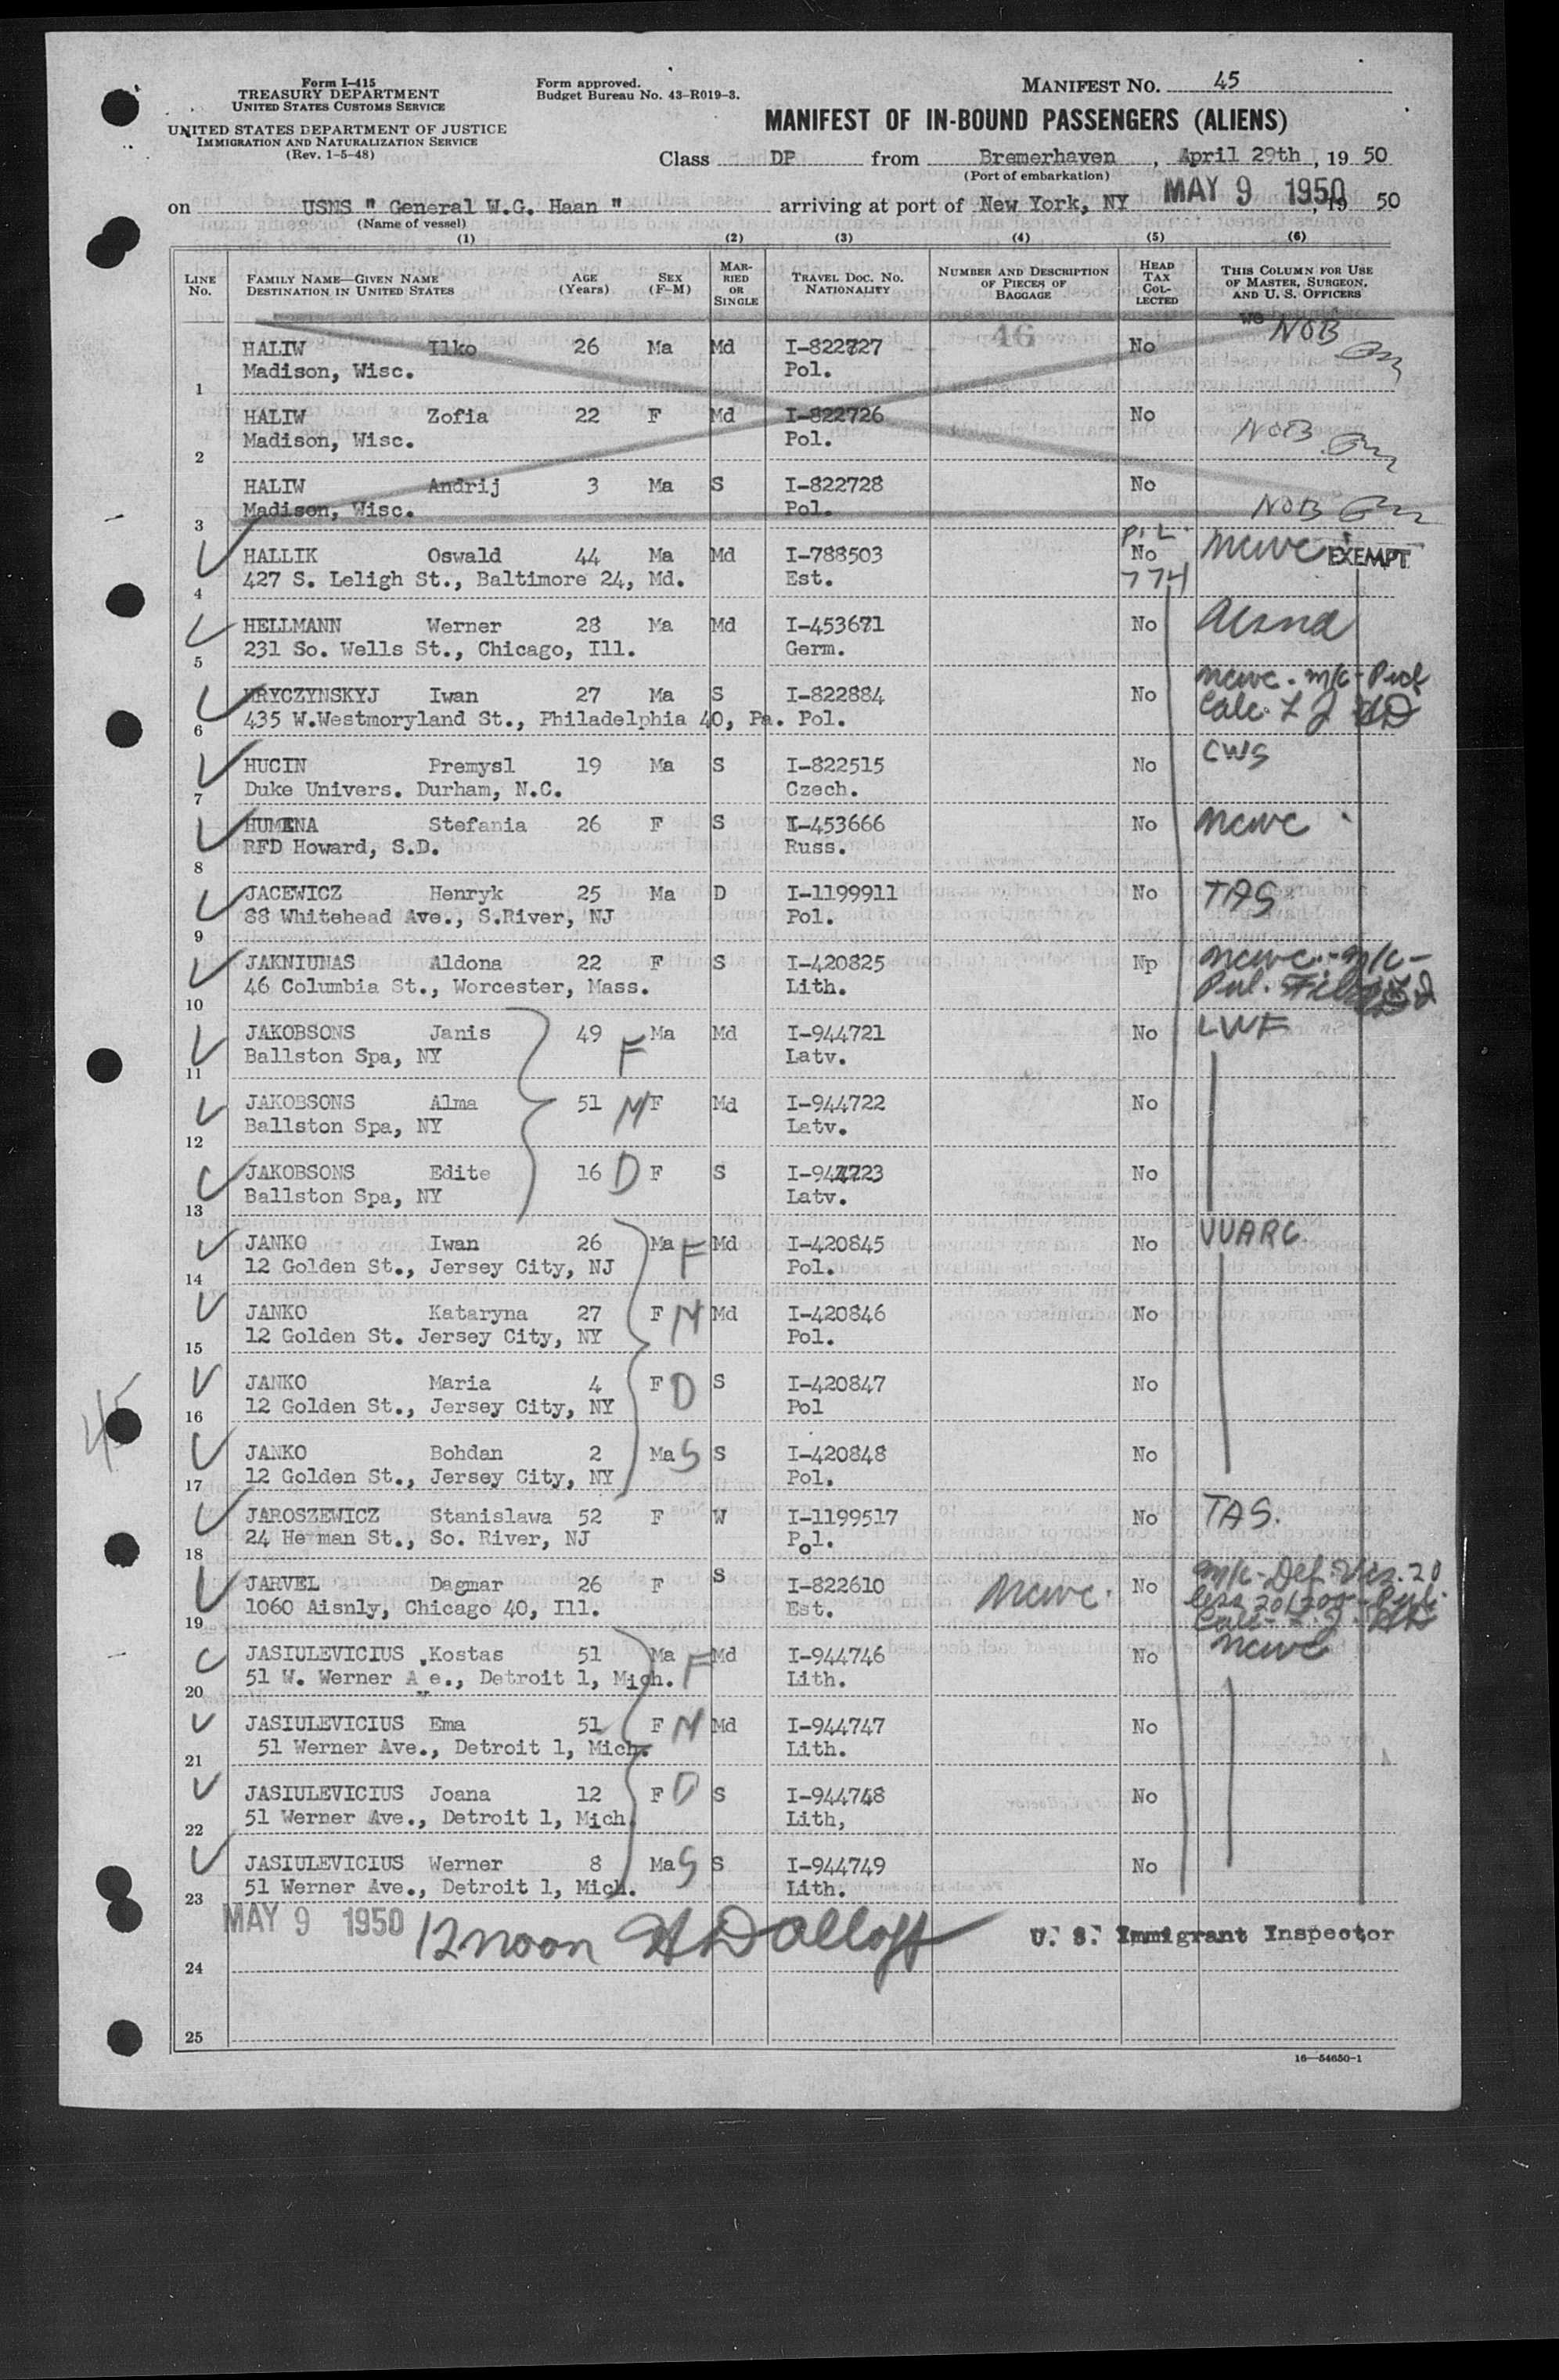 Form I-415
TREASURY DEPARTMENT
UNITED STATES CUSTOMS SERVICE
UNITED STATES DEPARTMENT OF JUSTICE
IMMIGRATION AND NATURALIZATION SERVICE
(Rev. 1-5-48)
Form approved.
Budget Bureau No. 43-R019-3.
MANIFEST NO. 45
MANIFEST OF IN-BOUND PASSENGERS (ALIENS)
Class DP from Bremerhaven, April 29th, 19 50
(Port of embarkation)
on USNS " General W.G. Haan " arriving at port of New York, NY MAY 9 1950, 19 50
(Name of vessel)
(1) (2) (3) (4) (5) (6)
LINE No. FAMILY NAME—GIVEN NAME DESTINATION IN UNITED STATES AGE (Years) SEX (F-M) MARRIED OR SINGLE TRAVEL DOC. NO. NATIONALITY NUMBER AND DESCRIPTION OF PIECES OF BAGGAGE HEAD TAX COLLECTED THIS COLUMN FOR USE OF MASTER, SURGEON, AND U. S. OFFICERS
46
HALIW Ilko 26 Ma Md I-822727 No NOB
1 Madison, Wisc. Pol.
HALIW Zofia 22 F Md I-822726 No NOB
2 Madison, Wisc. Pol.
HALIW Andrij 3 Ma S I-822728 No NOB
3 Madison, Wisc. Pol.
HALLIK Oswald 44 Ma Md I-788503 P.L. No 774 ncwc EXEMPT
4 427 S. Leligh St., Baltimore 24, Md. Est.
HELLMANN Werner 28 Ma Md I-453671 No
5 231 So. Wells St., Chicago, Ill. Germ.
HRYCZYNSKYJ Iwan 27 Ma S I-822884 No ncwc - m/c -
6 435 W.Westmoryland St., Philadelphia 40, Pa. Pol. Calc.
HUCIN Premysl 19 Ma S I-822515 No CWS
7 Duke Univers. Durham, N.C. Czech.
HUMENA Stefania 26 F S I-453666 No ncwc
8 RFD Howard, S.D. Russ.
JACEWICZ Henryk 25 Ma D I-1199911 No TAS
9 88 Whitehead Ave., S.River, NJ Pol.
JAKNIUNAS Aldona 22 F S I-420825 Np ncwc - m/c -
10 46 Columbia St., Worcester, Mass. Lith. Pul.
JAKOBSONS Janis 49 F Ma Md I-944721 No LWF
11 Ballston Spa, NY Latv.
JAKOBSONS Alma 51 M F Md I-944722 No
12 Ballston Spa, NY Latv.
JAKOBSONS Edite 16 D F S I-944723 No
13 Ballston Spa, NY Latv.
JANKO Iwan 26 Ma F Md I-420845 No UUARC
14 12 Golden St., Jersey City, NJ Pol.
JANKO Kataryna 27 F M Md I-420846 No
15 12 Golden St. Jersey City, NY Pol.
JANKO Maria 4 F D S I-420847 No
16 12 Golden St., Jersey City, NY Pol
45
JANKO Bohdan 2 Ma S S I-420848 No
17 12 Golden St., Jersey City, NY Pol.
JAROSZEWICZ Stanislawa 52 F W I-1199517 No TAS.
18 24 He man St., So. River, NJ Pol.
JARVEL Dagmar 26 F S I-822610 ncwc. No m/c - Def. Vis. 20
19 1060 Aisnly, Chicago 40, Ill. Est. 20/200 - Pul. Calc.
JASIULEVICIUS Kostas 51 Ma F Md I-944746 No ncwc
20 51 W. Werner A e., Detroit 1, Mich. Lith.
JASIULEVICIUS Ema 51 F M Md I-944747 No
21 51 Werner Ave., Detroit 1, Mich. Lith.
JASIULEVICIUS Joana 12 F D S I-944748 No
22 51 Werner Ave., Detroit 1, Mich. Lith,
JASIULEVICIUS Werner 8 Ma S S I-944749 No
23 51 Werner Ave., Detroit 1, Mich. Lith.
MAY 9 1950 12 noon U. S. Immigrant Inspector
24
25
16—54650-1